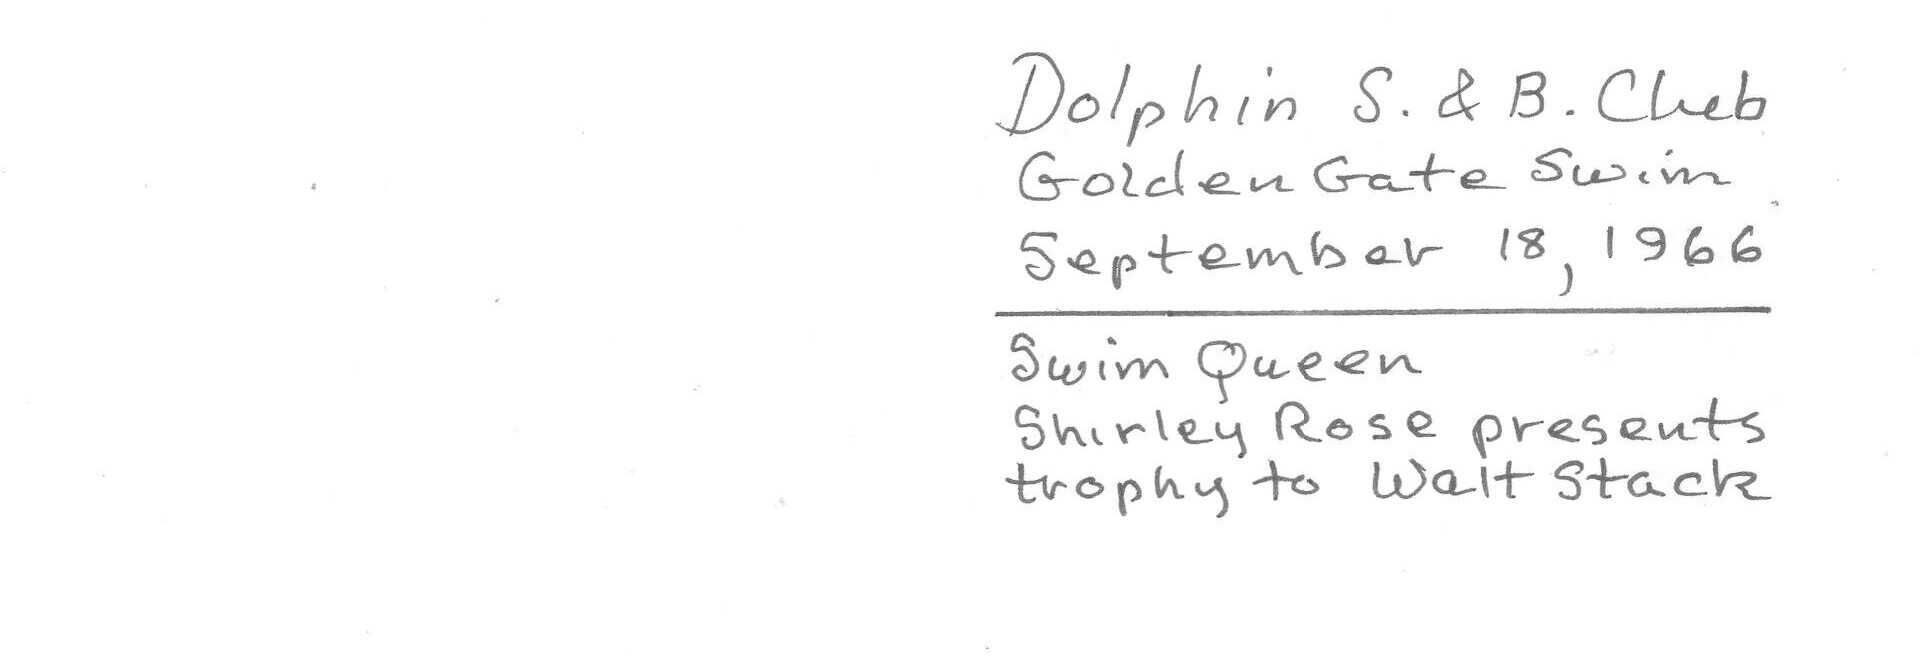 Dolphin S. & B. Club
Golden Gate Swim
September 18, 1966
Swim Queen
Shirley Rose presents
trophy to Walt Stack